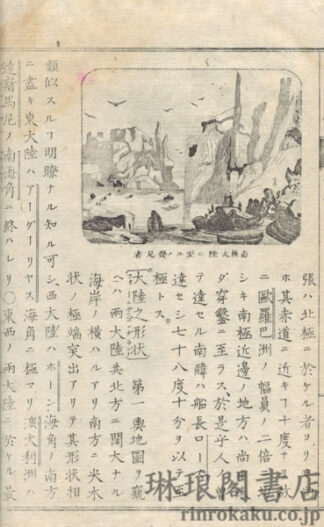 南極大陸ニ至ル發見者
張ハ北極ニ於ケル者ヨリ
ホ其赤道ニ近キヿ十度ナリ故
ニ歐羅巴洲ノ幅員ノ二倍
シキ南極近邊ノ地方ハ尚
ダ穿鑿ニ至ラス、於是乎人ノ
テ達セル南緯ハ船長ロー
達セシ七十八度十分ヲ以テ
極トス。
大陸之形状 第一輿地圖ヲ窺
ヘハ兩大陸共北方ニ闊大ナル
海岸ノ横ハルアリ南方ニ尖木
状ノ極端突出アリテ其形状相
類似スルヿ明瞭ナル知ル可シ西大陸ハホーン海角ノ南方
ニ盡キ東大陸ハアーグーリヤス海角ニ極マリ澳大利洲ハ
達斯馬尼ノ南海角ニ終ハレリ〇東西兩大陸ニ於ケル最
琳琅閣書店
rinrokaku.co.jp